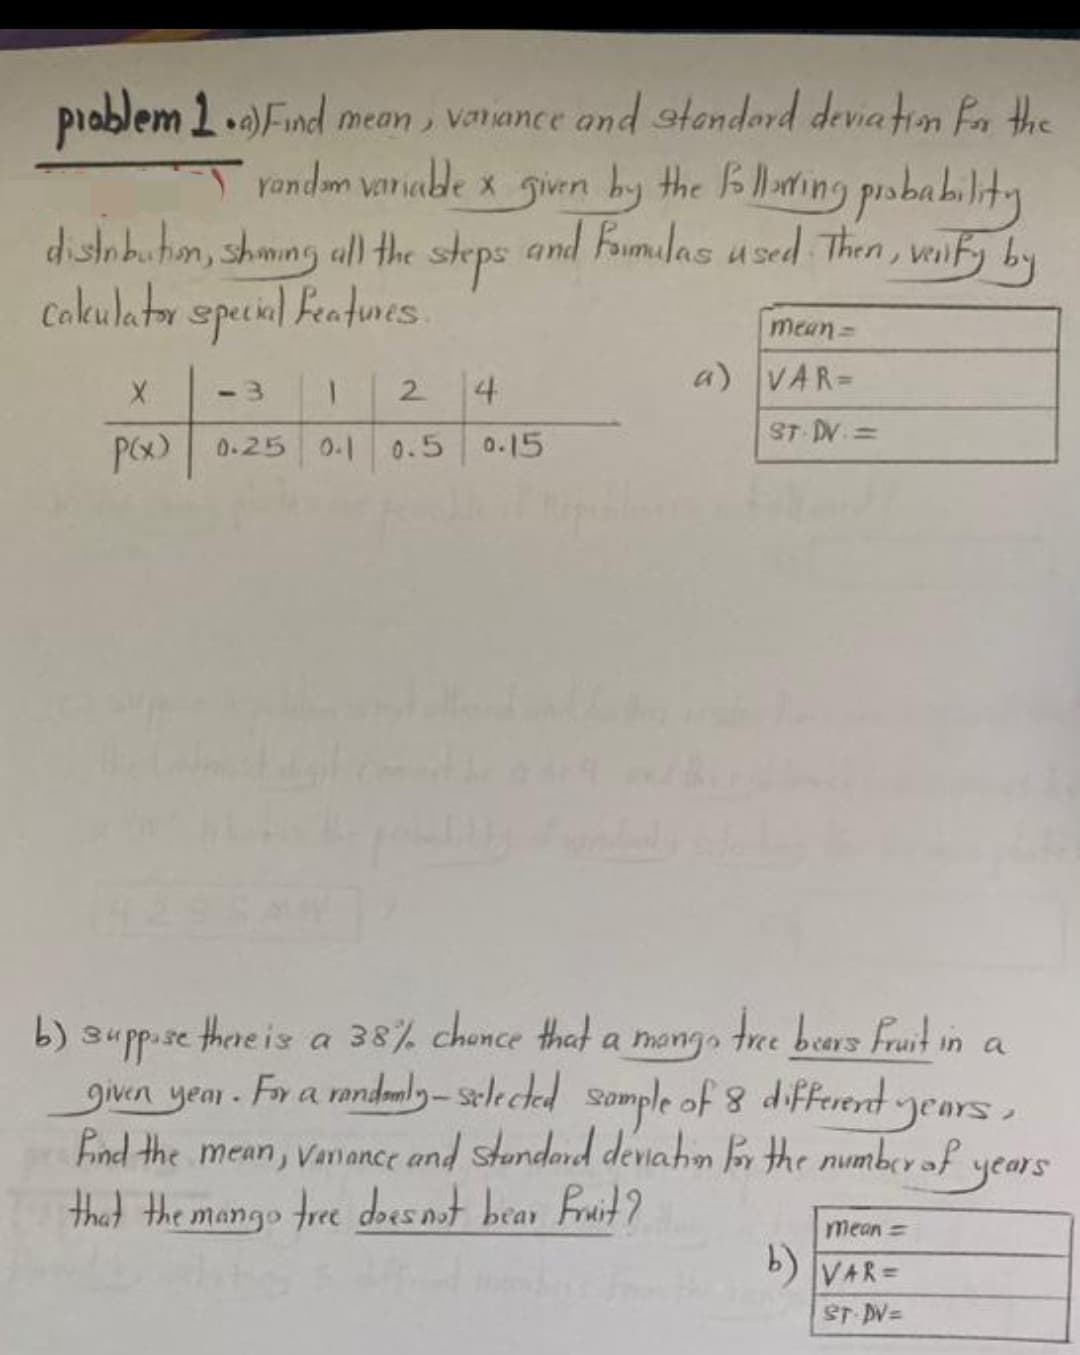 problem 1. a) Find mean, variance and standard deviation for the
random variable x given by the following probability
distribution, showing all the steps and formulas used. Then, verify by
calculator special features.
mean =
a) VAR =
ST. DV. =
X | -3 | 1 | 2 | 4
P(x) | 0.25 | 0.1 | 0.5 | 0.15
b) suppose there is a 38% chance that a mango tree bears fruit in a
given year. For a randomly-selected sample of 8 different years,
find the mean, variance and standard deviation for the number of years
that the mango tree does not bear fruit?
mean =
b) VAR =
ST. DV =